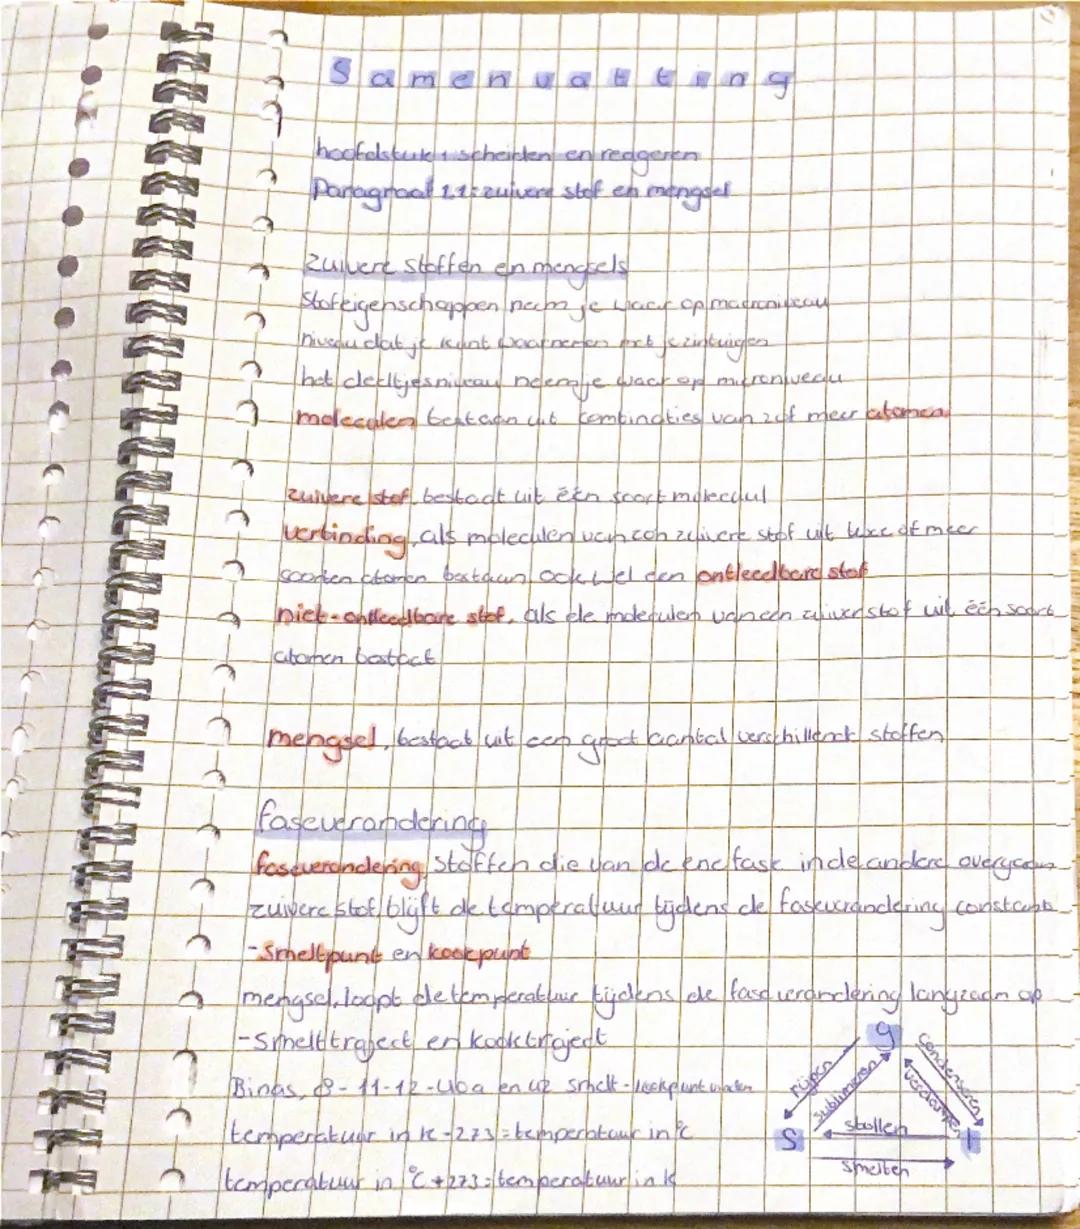 Samenvatting
hoofdstuk 1 scheiden en reageren
Paragraaf 1.1: zuivere stof en mengsel
Zuivere stoffen en mengsels
Stofeigenschappen neem je waar op macroniveau
niveau dat je kunt waarnemen met je zintuigen
het deeltjesniveau neem je waar op microniveau
moleculen bestaan uit combinaties van 2 of meer atomen
zuivere stof, bestaat uit één soort molecuul
verbinding, als moleculen van een zuivere stof uit twee of meer
soorten atomen bestaan, ook wel een ontleedbare stof
niet-ontleedbare stof, als de moleculen van een zuiver stof uit één soort
atomen bestaat
mengsel, bestaat uit een groot aantal verschillende stoffen
faseverandering
faseverandering, stoffen die van de ene fase in de andere overgaan
zuivere stof, blijft de temperatuur tijdens de faseverandering constant
-smeltpunt en kookpunt
mengsel, loopt de temperatuur tijdens de faseverandering langzaam op
-smelttraject en kooktraject
Binas, 8-11-12-40a en 42 smelt-kookpunt
temperatuur in K-273=temperatuur in °C
temperatuur in °C+273=temperatuur in K
g
rijpen
sublimeren
condenseren
verdampen
s
stollen
l
smelten